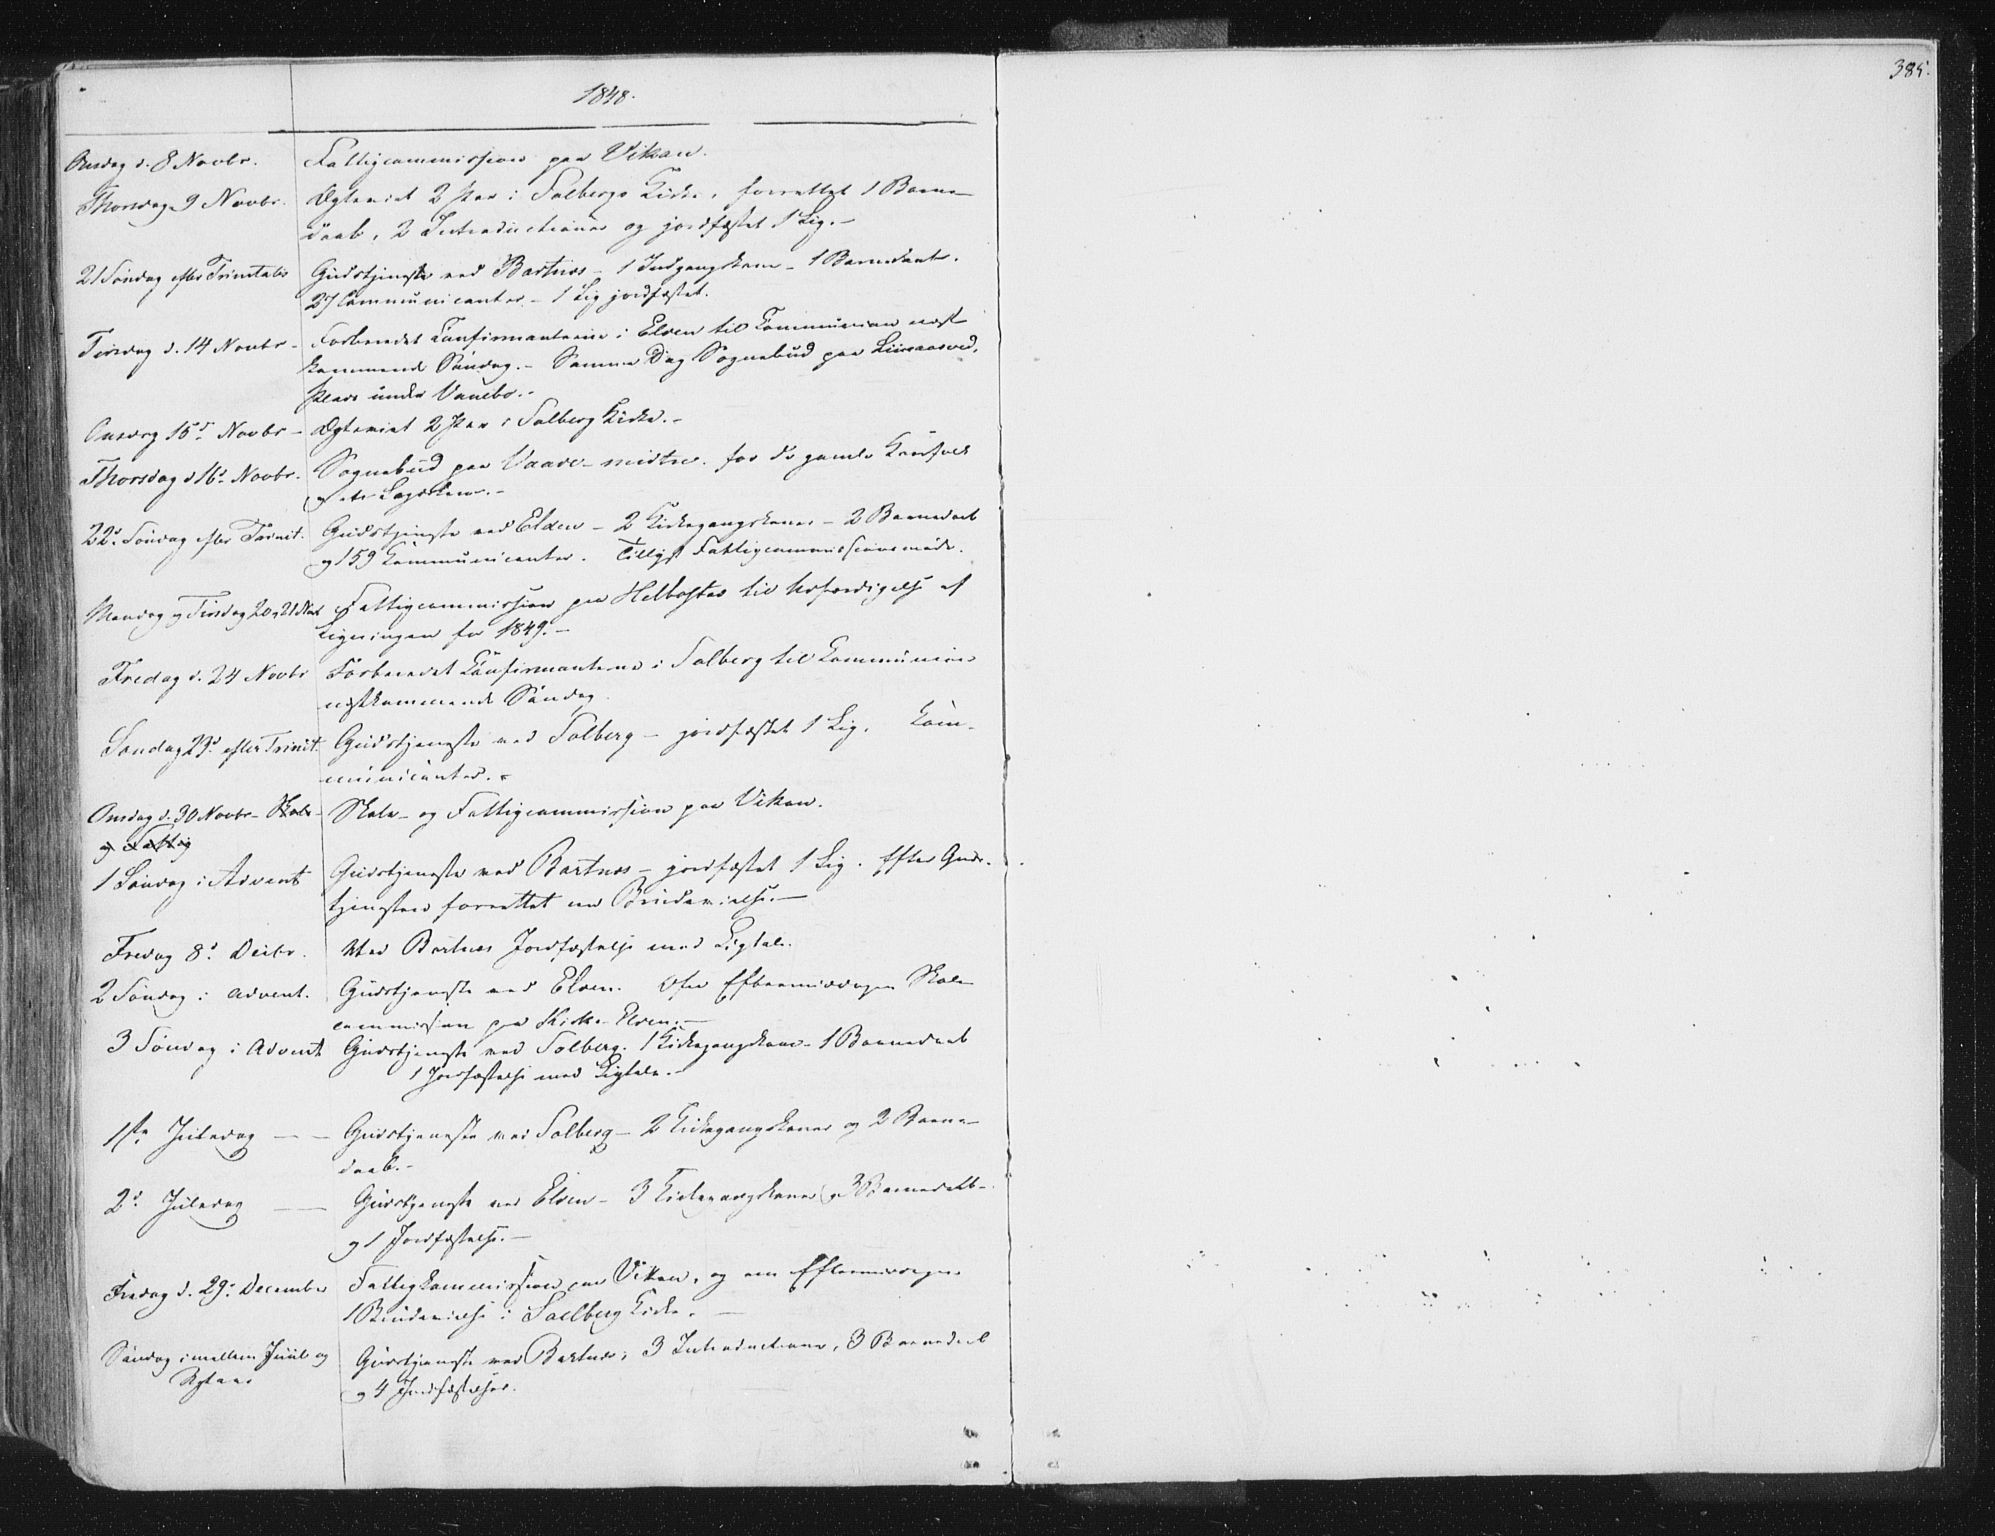 385.
1848.
Onsdag d. 8 Novbr. Fattigcommission paa Vikan.
Thorsdag 9 Novbr. Ægteviet 2 Par i Solbergs Kirke, forrettet 1 Barne-
daab, 2 Introductioner og jordfæstet 1 Lig.-
21 Søndag efter Trinitatis Gudstjeneste ved Bartnæs - 1 Indgangskone - 1 Barnedaab.
27 Communicanter - 1 Lig jordfæstet.
Tirsdag d. 14 Novbr - Forberedet Confirmanterne i Elden til Communion næst
kommende Søndag. - Samme Dag Sognebud paa
Plads under
Onsdag 15d Novbr - Ægteviet 2 Par i Solberg Kirke.-
Thorsdag d 16d Novbr. Sognebud paa for de gamle
og
22d Søndag efter Trinit. Gudstjeneste ved Elden - 2 Kirkegangskoner - 2 Barnedaab
og 159 Kommunicanter. Tilligst Fattigcommissionsmøde.
Mandag og Tirsdag 20 og 21 Nov Fattigcommission paa til af
Ligningen for 1849.-
Fredag d. 24 Novbr Forberedet Confirmanterne i Solberg til Kommunion
næstkommende Søndag.
Søndag 23d efter Trinit. Gudstjeneste ved Solberg - jordfæstet 1 Lig. Kom-
municanter.-
Onsdag d. 30 Novbr - Skole- Skole- og Fattigcommission paa Vikan.
og Fattig
1 Søndag i Advent Gudstjeneste ved Bartnæs - jordfæstet 1 Lig. Efter Guds-
tjenesten forrettet en Brudevielse.-
Fredag 8d Decbr. Ved Bartnæs Jordfæstelse med Ligtale.
2 Søndag i Advent. Gudstjeneste ved Elden. Eftermiddagen Skole
commission paa Kirke-Elden.-
3 Søndag i Advent Gudstjeneste ved Solberg. 1 Kirkegangskone - 1 Barnedaab
1 Jordfæstelse med Ligtale.-
1ste Juledag - - Gudstjeneste ved Solberg - 2 Kirkegangskoner og 2 Barne-
daab.-
2d Juledag - - Gudstjeneste ved Elden - 3 Kirkegangskoner, 3 Barnedaab-
og 1 Jordfæstelse.-
Fredag d. 29d December Fattigkommission paa Vikan, og om Eftermiddagen
1 Brudevielse i Soelberg Kirke.-
Søndag imellem Juul og Gudstjeneste ved Bartnæs; 3 Introductioner, 3 Barnedaab
Nytaar og 4 Jordfæstelser.